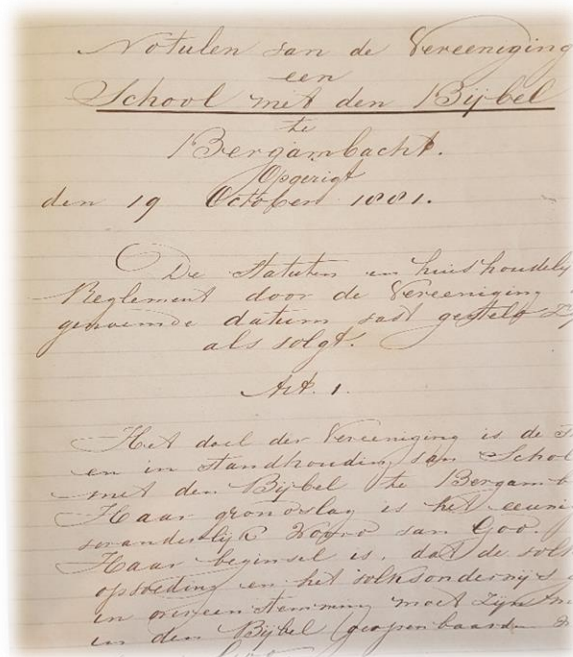 Notulen van de Vereeniging
een
School met den Bijbel
te
Bergambacht.
Opgerigt
den 19 October 1881.
De Statuten en huishoudelij
Reglement door de Vereeniging
genoemde datum vast gesteld zij
als volgt.
Art. 1.
Het doel der Vereeniging is de
en in standhouding van School
met den Bijbel te Bergamb
Haar grondslag is het eeuwig
veranderlijk Woord van God.
Haar beginsel is, dat de volks
opvoeding en het volksonderwijs
in overeenstemming moet zijn me
in den Bijbel geopenbaarden